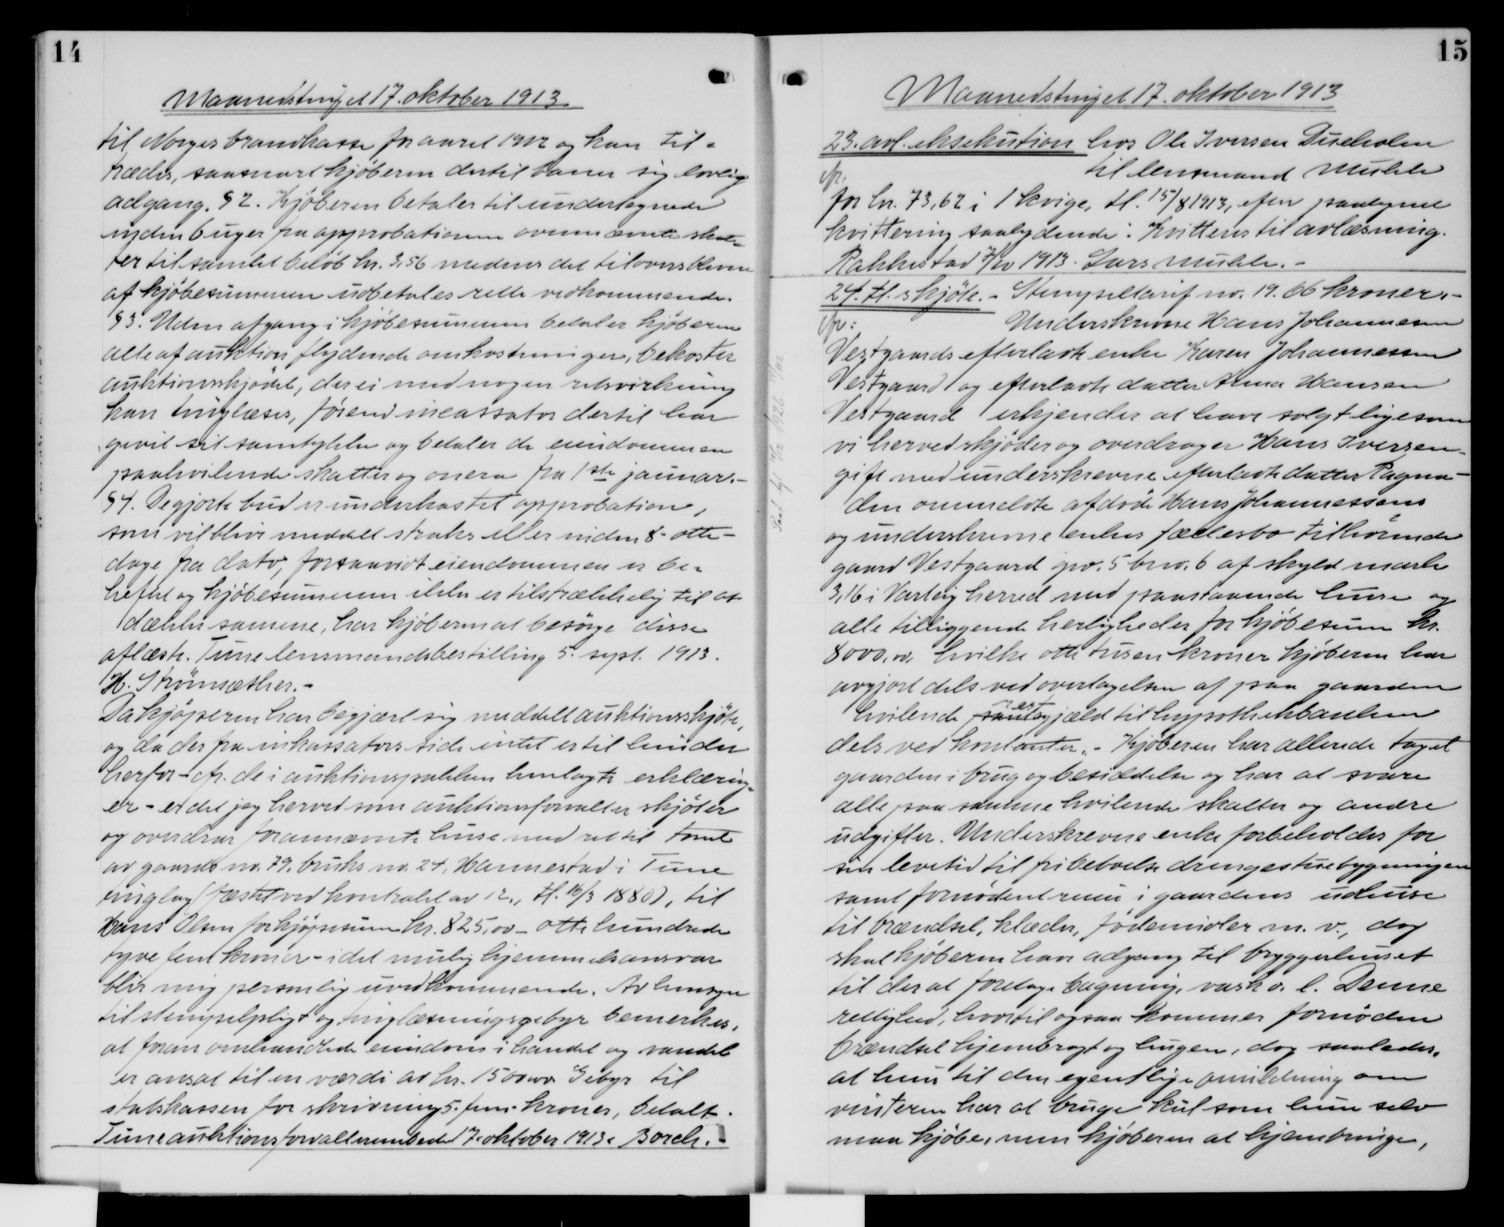 14
Maanedstinget 17. oktober 1913.
til Norges brandkasse for aaret 1912 og kan til-
trædes, saasnart kjøberen dertil baner sig lovlig
adgang. §2. Kjøberen betaler til undertegnede
inden 6 uger fra approbationen ovennævnte skat-
ter til samlet beløb kr. 3,56 medens det tiloversblevne
af kjøbesummen udbetales rette vedkommende.
§3. Uden afgang i kjøbesummen betaler kjøberen
alle af auktion flydende omkostninger, bekoster
auktionsskjødet, der ei med nogen retsvirkning
kan tinglæses, førend incassator dertil har
givet sit samtykke og betaler de eiendommen
paahvilende skatter og onera fra 1ste januar.-
§4. De gjorte bud er underkastet approbation,
som vil blive meddelt straks eller inden 8- otte-
dage fra dato, forsaavidt eiendommen er be-
heftet og kjøbesummen ikke er tilstrækkelig til at
dække samme, har kjøberen at besørge disse
aflæst. Tune lensmandsbestilling 5. sept. 1913.
H. Strømsæther.-
Da kjøperen har begjært sig meddelt auktionsskjøte,
og da der fra inkassators side intet er til hinder
herfor - cfr. de i auktionspakken henlagte erklæring-
er - er det jeg herved som auktionsforvalter skjøter
og overdrar forannævnte huse med ret til tomt
av gaards no. 79, bruks no. 24, Hannestad i Tune
tinglag (fæstet ved kontrakt av 12., tl. 16/3 1880), til
Hans Olsen for kjøpesum kr. 825,00 - otte hundrede
tyve fem kroner - idet mulig hjemmelsansvar
blir mig personlig uvedkommende. Av hensyn
til stempelpligt og tinglæsningsgebyr bemerkes,
at foran omhandlede eiendom i handel og vandel
er ansat til en værdi av kr. 1500,00. Gebyr til
statskassen for skrivning 5- fem- kroner, betalt.
Tune auktionsforvalterembede 17. oktober 1913. Borch.-
15
Maanedstinget 17. oktober 1913
23. avl. eksekution hos Ole Iversen Dueholen
til lensmand Muhle
for kr. 73,62 i 1 kvige, tl. 15/8 1913, efter paategnet
kvittering saalydende: Kvitteres til avlæsning.
Rakkestad 7/10 1913. Lars Muhle.-
24. tl. skjøte.- Stempeltarif no. 19. 66 kroner.-
cfr: Underskrevne Hans Johannesen
Vestgaards efterladte enke Karen Johannessen
Vestgaard og efterladte datter Anna Hansen
Vestgaard erkjender at have solgt ligesom
vi herved skjøder og overdrager Hans Iversen-
gift med underskrevne efterladte datter Ragna-
den ommeldte afdøde Hans Johannessens
og underskrevne enkes fællesbo tilhørende
gaard Vestgaard gno. 5 brno. 6 af skyld mark
3,16 i Varteig herred med paastaaende huse og
alle tilliggende herligheder for kjøbesum kr.
8000,00, hvilke otte tusen kroner kjøberen har
avgjort dels ved overtagelsen af paa gaarden
hvilende restgjæld til hypothekbanken
dels ved kontanter.- Kjøberen har allerede taget
gaarden i brug og besiddelse og har at svare
alle paa samme hvilende skatter og andre
udgifter. Underskrevne enke forbeholdes for
sin levetid til fri beboelse drengestuebygningen
samt fornødent rum i gaardens udhuse
til brændsel, klæder, fødemidler m. v., dog
skal kjøberen have adgang til bryggerhuset
til der at foretage bagning, vask o. l. Denne
rettighed, hvortil ogsaa kommer fornøden
brændsel hjembragt og hugen, dog saaledes,
at hun til den egentlige omildning om
vinteren har at bruge kul som hun selv
maa kjøbe, men kjøberen at hjembringe,